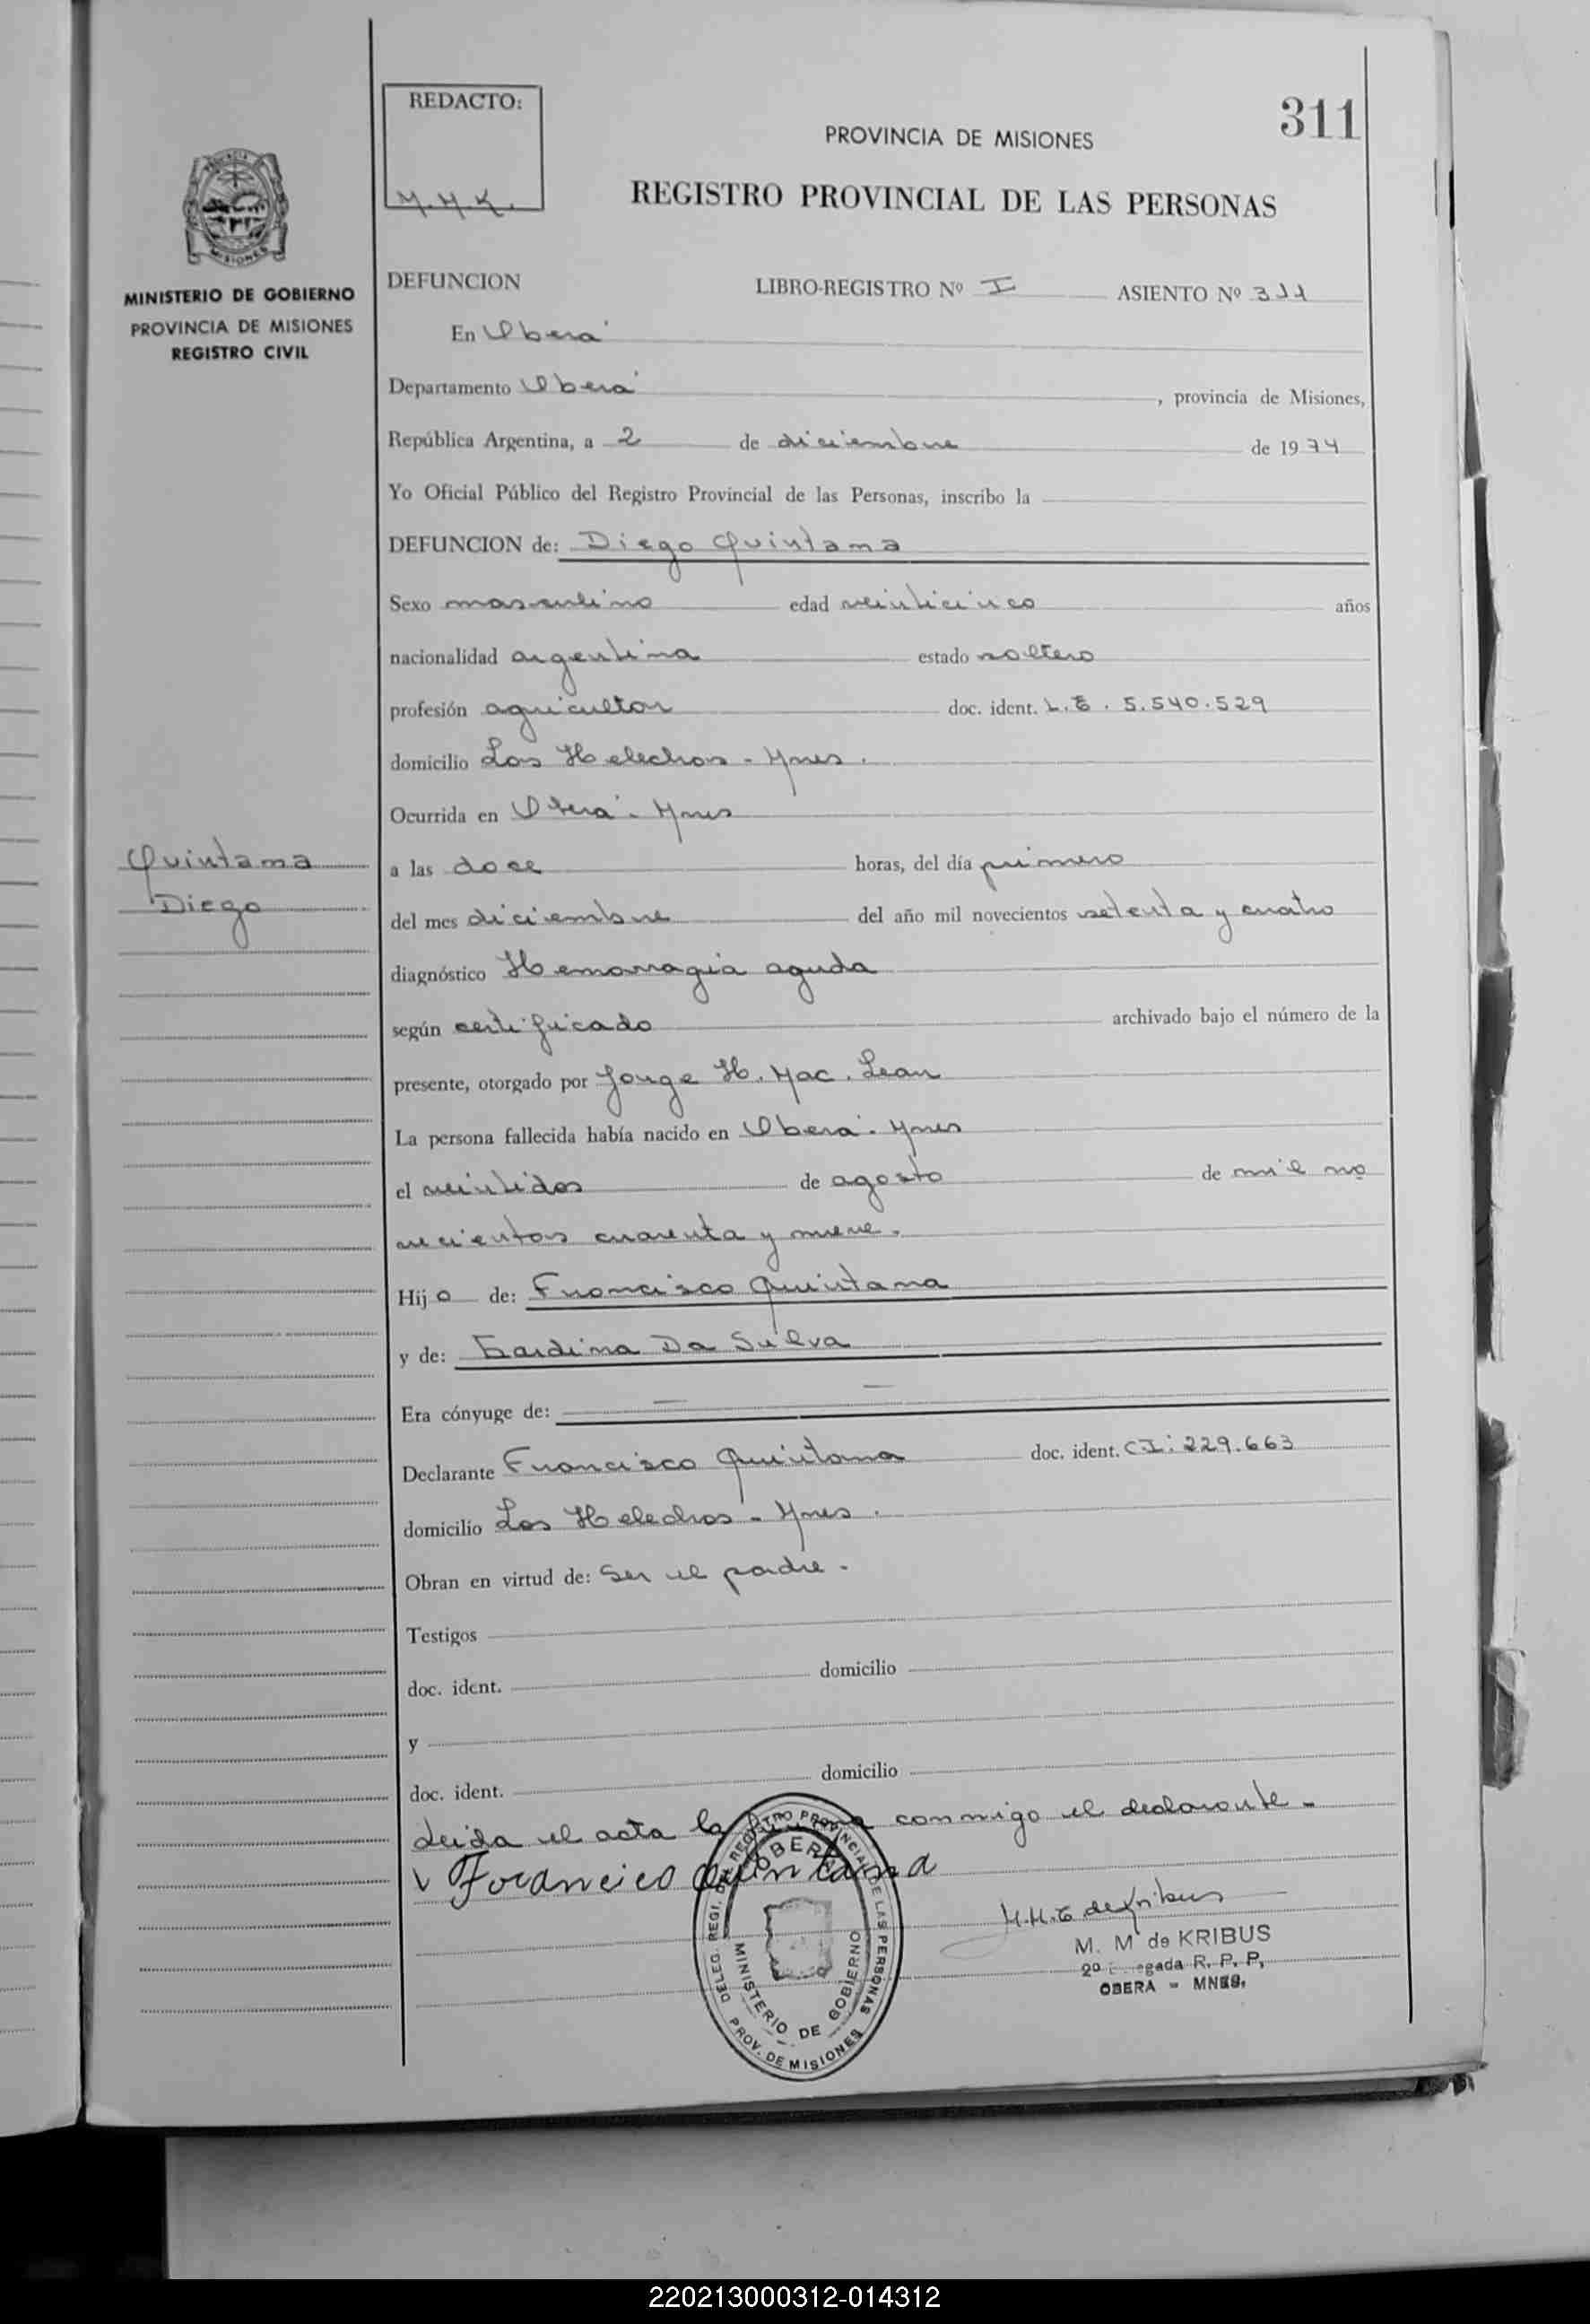 REDACTO:
M.M.K.
311
PROVINCIA DE MISIONES
REGISTRO PROVINCIAL DE LAS PERSONAS
MINISTERIO DE GOBIERNO
PROVINCIA DE MISIONES
REGISTRO CIVIL
DEFUNCION LIBRO-REGISTRO Nº I ASIENTO Nº 311
En Oberá
Departamento Oberá, provincia de Misiones,
República Argentina, a 2 de diciembre de 1974
Yo Oficial Público del Registro Provincial de las Personas, inscribo la
DEFUNCION de: Diego Quintana
Sexo masculino edad veinticinco años
nacionalidad argentina estado soltero
profesión agricultor doc. ident. L.E. 5.540.529
domicilio Los Helechos - Mnes.
Ocurrida en Oberá - Mnes
Quintana
Diego
a las doce horas, del día primero
del mes diciembre del año mil novecientos setenta y cuatro
diagnóstico Hemorragia aguda
según certificado archivado bajo el número de la
presente, otorgado por Jorge H. Mac. Lean
La persona fallecida había nacido en Oberá - Mnes
el veintidos de agosto de mil no
vecientos cuarenta y nueve.
Hijo de: Francisco Quintana
y de: Da Silva
Era cónyuge de: —
Declarante Francisco Quintana doc. ident. CI: 229.663
domicilio Los Helechos - Mnes.
Obran en virtud de: Ser el padre.
Testigos
doc. ident. domicilio
y
doc. ident. domicilio
Leida el acta la firma conmigo el declarante.
Francisco Quintana
M. M de KRIBUS
R. P. P.
OBERA - MNES.
DELEG. REGI. DEL REGISTRO PROVINCIAL DE LAS PERSONAS
OBERA
MINISTERIO DE GOBIERNO
PROV. DE MISIONES
220213000312-014312